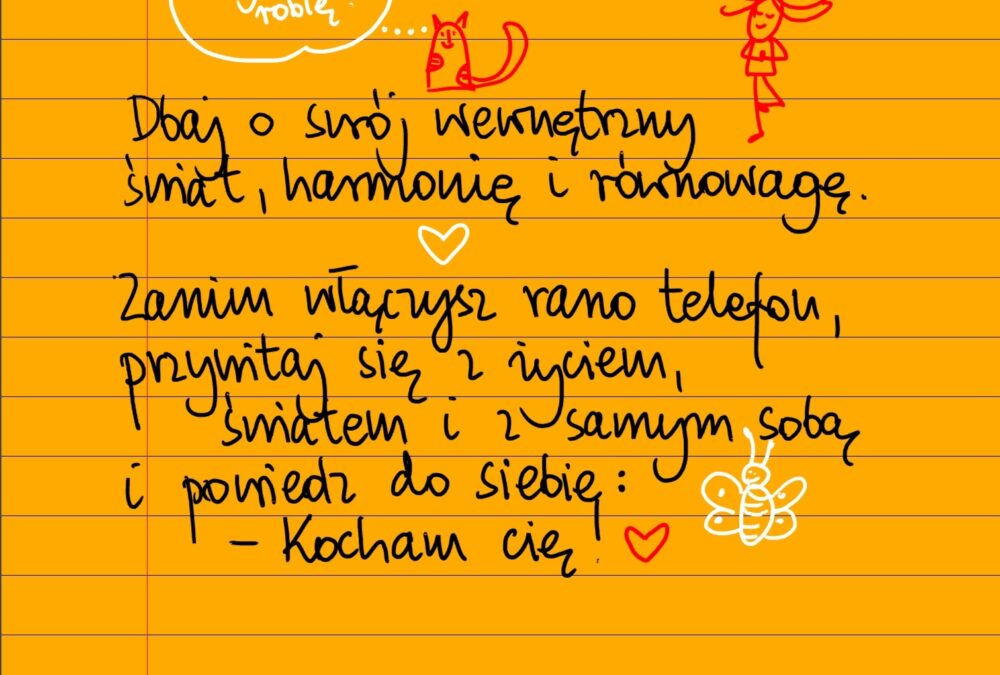 robię.
Dbaj o swój wewnętrzny
świat, harmonię i równowagę.
Zanim włączysz rano telefon,
przywitaj się z życiem,
światem i z samym sobą
i powiedz do siebię:
- Kocham cię!